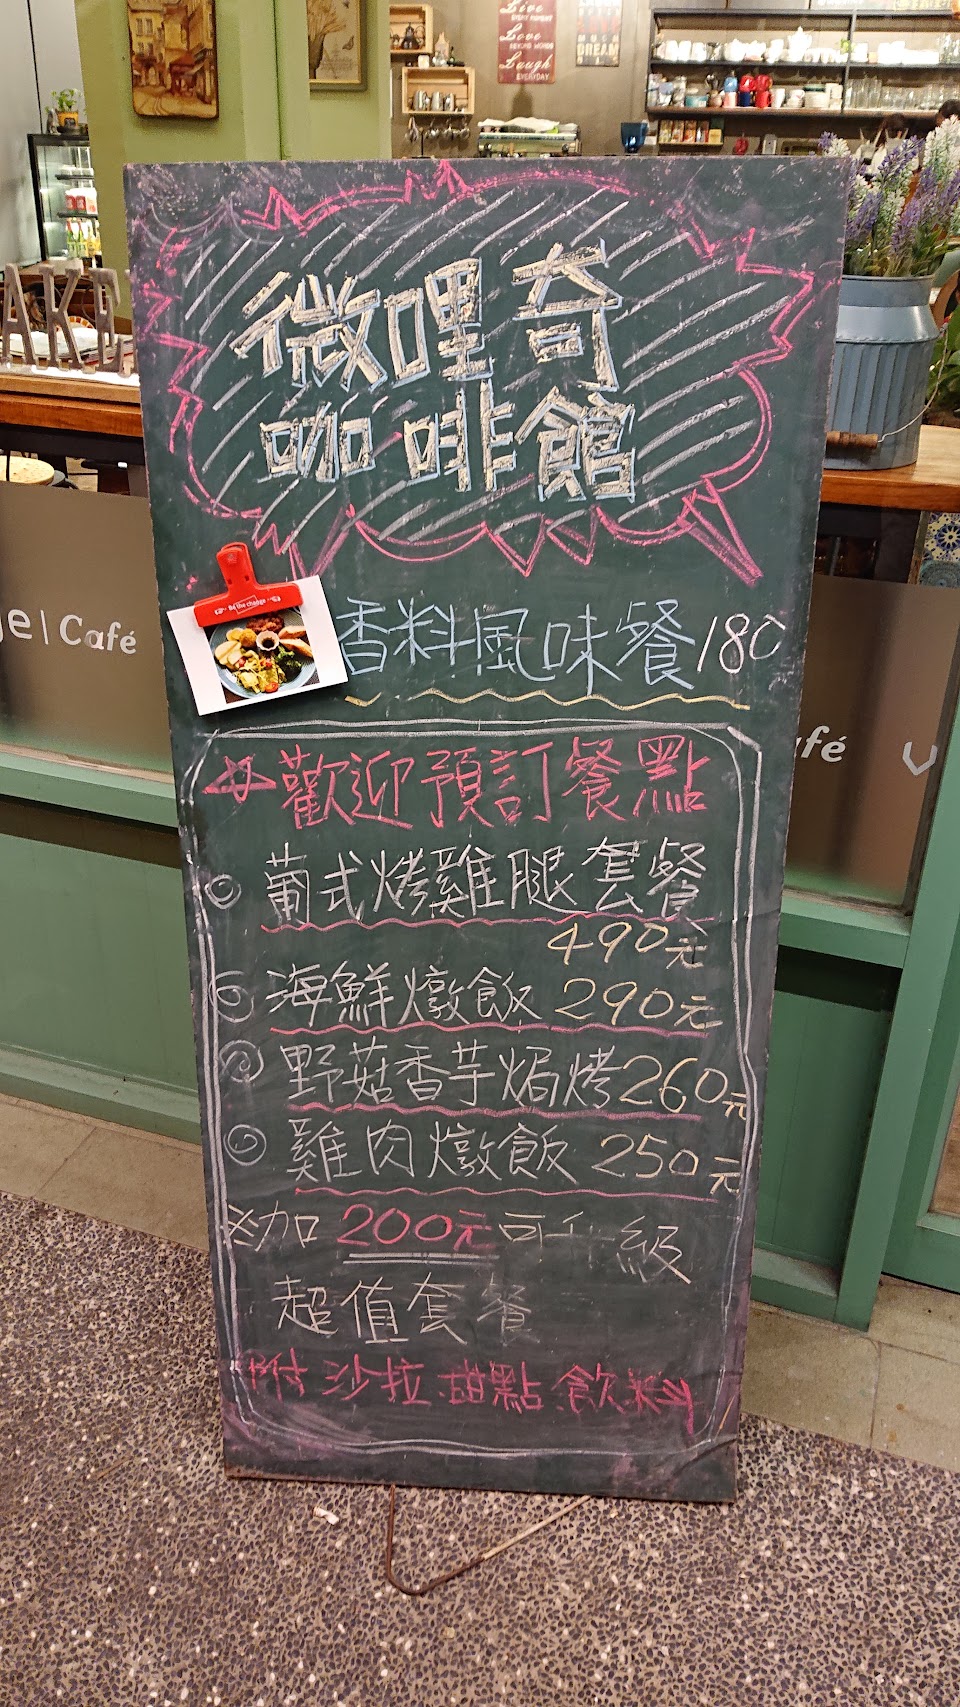 Live
EVERY MOMENT
Love
BEYOND WORDS
Laugh
EVERYDAY
DREAM
AKE
微哩奇
咖啡館
Be the change
香料風味餐180
ge | Café
afé
V
歡迎預訂餐點
葡式烤雞腿套餐
490元
海鮮燉飯 290元
野菇香芋焗烤260元
雞肉燉飯 250元
※加200元可升級
超值套餐
附沙拉.甜點.飲料